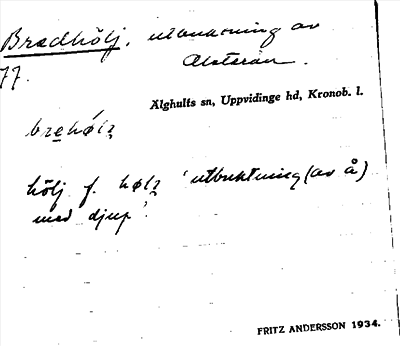 Bredhölj, utbuktning av
77. Alsterån.
Älghults sn, Uppvidinge hd, Kronob. l.
hölj f. 'utbuktning (av å)
med djup'.
FRITZ ANDERSSON 1934.